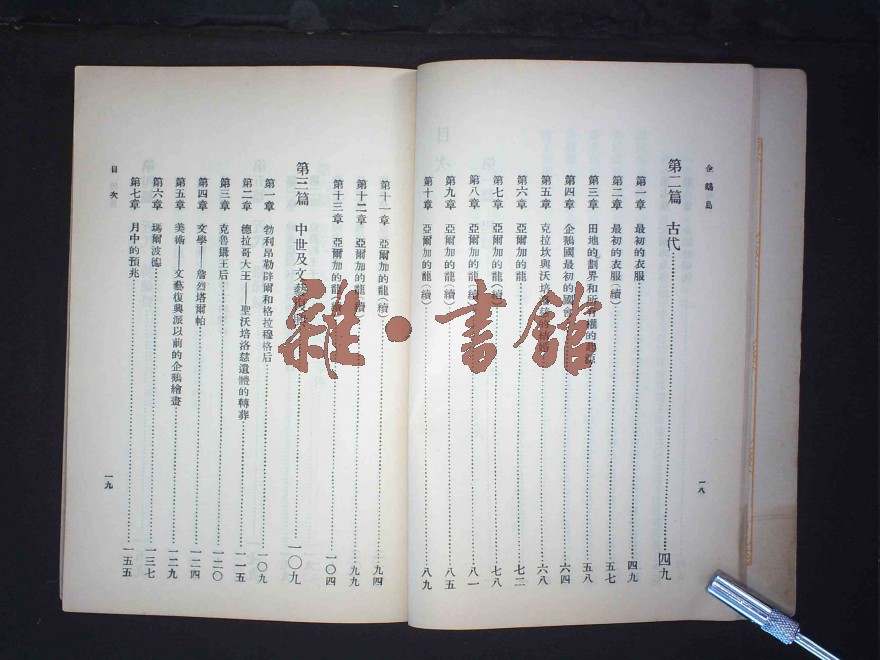 企鵝島
第二篇 古代……四九
第一章 最初的衣服……四九
第二章 最初的衣服(續)……五七
第三章 田地的劃界和所有權的起源……五八
第四章 企鵝國最初的國會……六四
第五章 克拉坎與沃培洛慈的結婚……六八
第六章 亞爾加的龍……七二
第七章 亞爾加的龍(續)……七八
第八章 亞爾加的龍(續)……八一
第九章 亞爾加的龍(續)……八五
第十章 亞爾加的龍(續)……八九
一八
第十一章 亞爾加的龍(續)……九四
第十二章 亞爾加的龍(續)……九九
第十三章 亞爾加的龍(續)……一〇四
第三篇 中世及文藝復興……一〇九
第一章 勃利昂勒辟爾和格拉穆格后……一〇九
第二章 德拉哥大王——聖沃培洛慈遺體的轉葬……一一五
第三章 克魯攝王后……一二〇
第四章 文學——詹烈塔爾帕……一二四
第五章 美術——文藝復興派以前的企鵝繪畫……一二九
第六章 瑪爾波德……一三七
第七章 月中的預兆……一五五
目次
一九
雜·書館